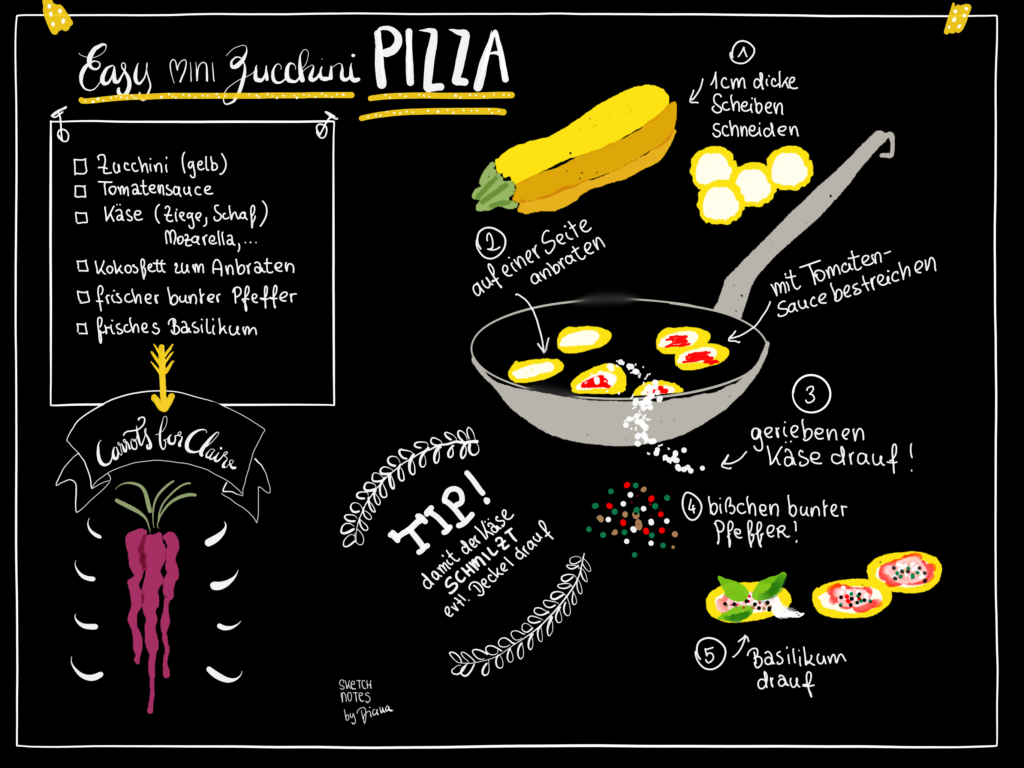 Easy mini Zucchini PIZZA
Zucchini (gelb)
Tomatensauce
Käse (Ziege, Schaf)
Mozarella,...
Kokosfett zum Anbraten
frischer bunter Pfeffer
frisches Basilikum
Carrots for Claire
1
1cm dicke
Scheiben
schneiden
2
auf einer Seite
anbraten
mit Tomaten-
sauce bestreichen
3
geriebenen
Käse drauf!
4 bißchen bunter
Pfeffer!
5
Basilikum
drauf
TIP!
damit der Käse
SCHMILZT
evtl. Deckel drauf
SKETCH
NOTES
by Diana